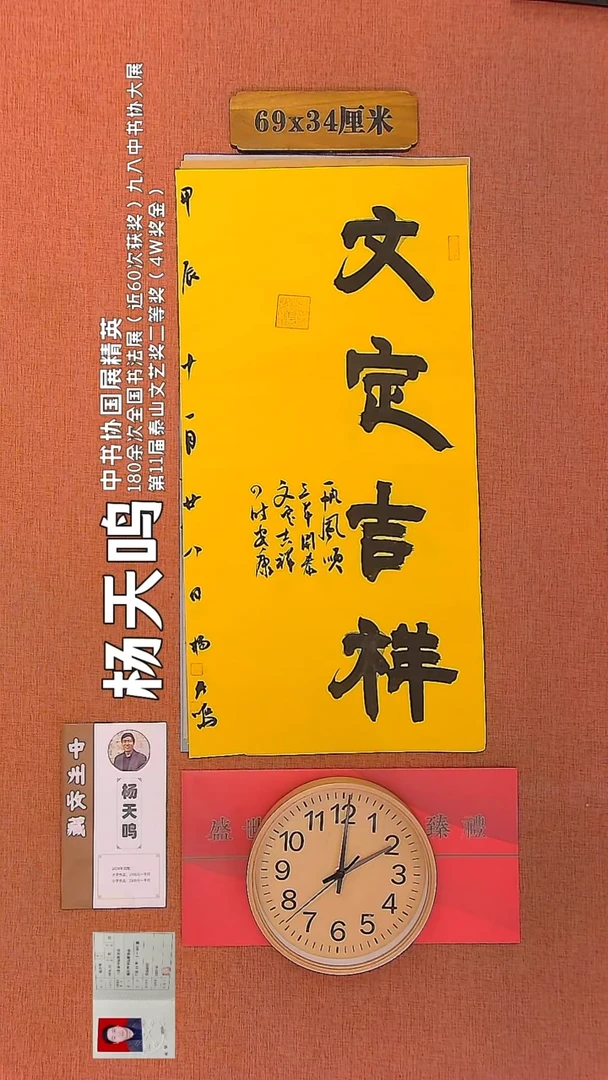 69x34厘米
文定吉祥
一帆風順
三羊開泰
文定吉祥
四时安康
甲辰十一月廿八日杨天鸣
中书协国展精英
180余次全国书法展（近60次获奖）九八中书协大展
第11届泰山文艺奖二等奖（4W奖金）
杨天鸣
杨天鸣
盛
臻禮
12
1
2
3
4
5
6
7
8
9
10
11